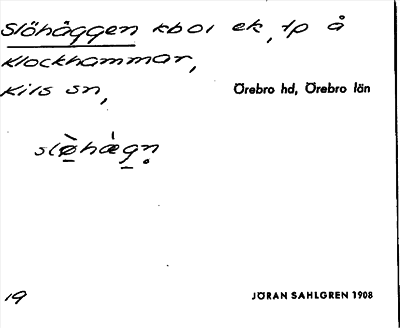 Slöhäggen kboi ek, tp å
Klockhammar,
Kils sn,
Örebro hd, Örebro län
slø̀hæ̀gn̥
19
JÖRAN SAHLGREN 1908